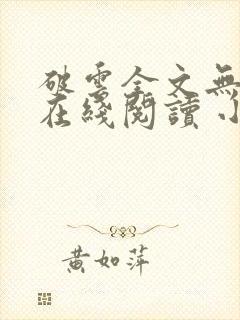 破雲全文無
在綫閱讀小
黃如萍